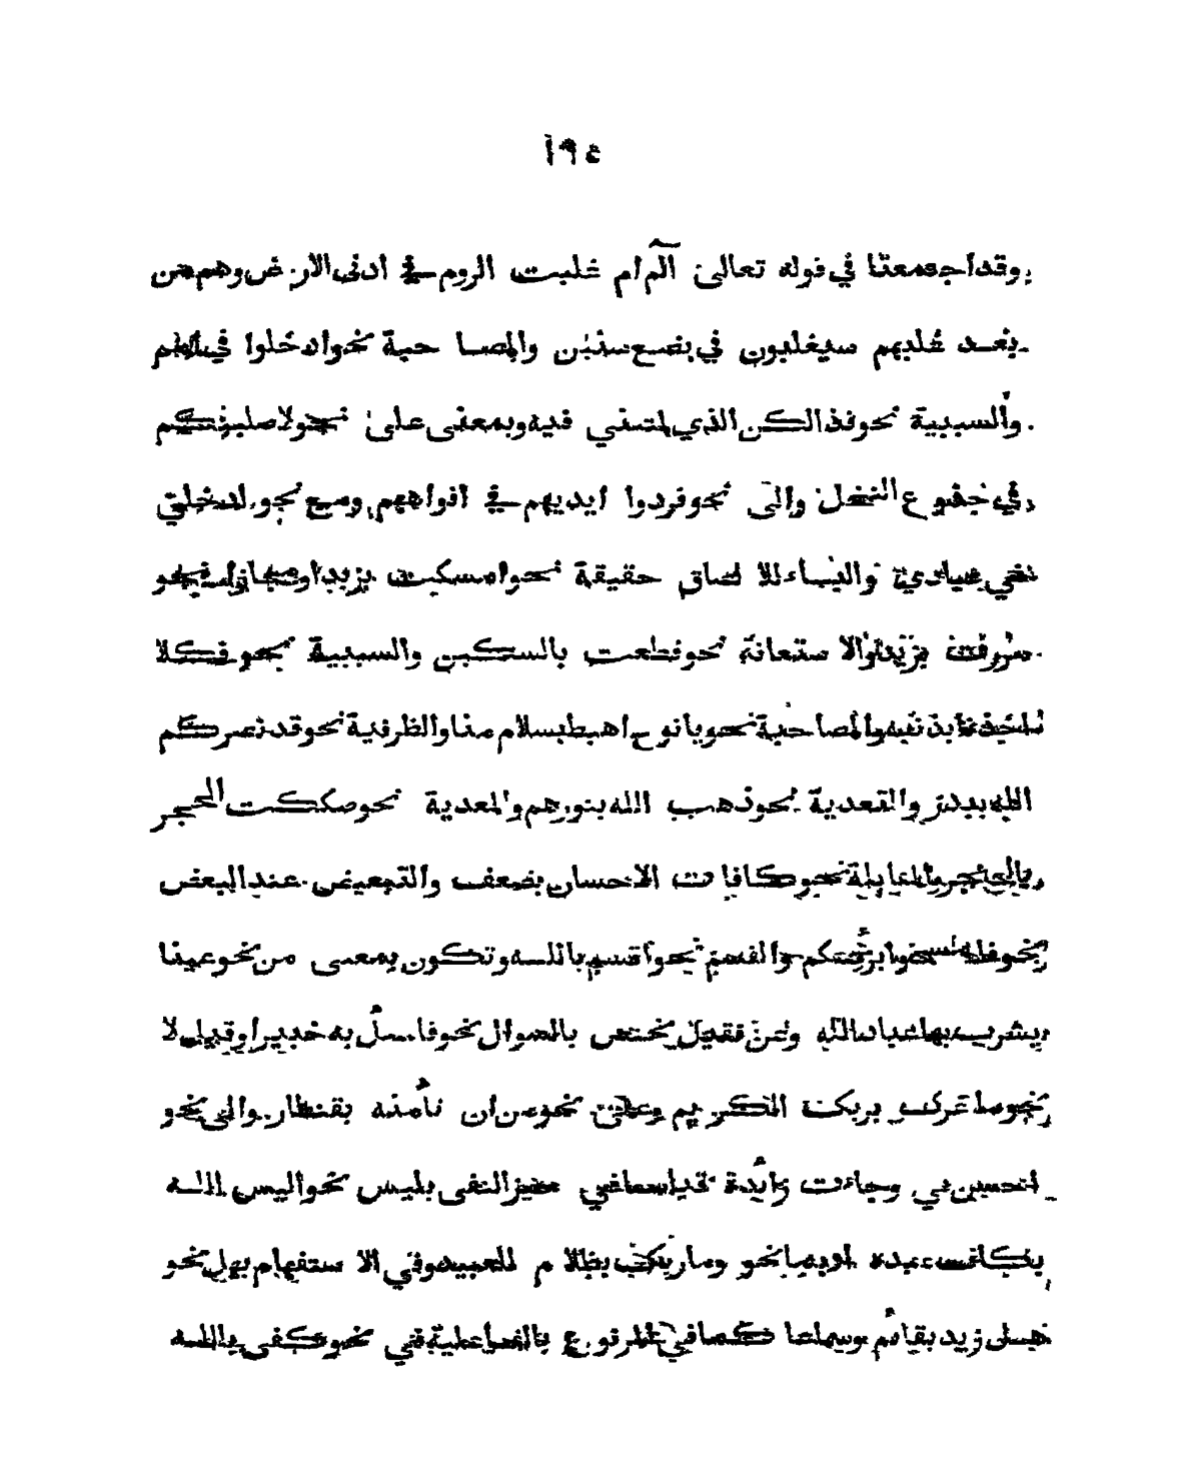 ١٩٤
وقد اجتمعتا في قوله تعالى آلم ام غلبت الروم في ادنى الارض وهم من
بعد غلبهم سيغلبون في بضع سنين والمصا حبة نحو ادخلوا في امم
والسببية نحو فذالكن الذي لمتنني فيه وبمعنى على نحو لاصلبنكم
في جذوع النخل والى نحو فردوا ايديهم في افواههم ومع نحو ادخلي
في عبادي والباء للا لصاق حقيقة نحو امسكت بزيد او مجازا نحو
مررت بزيد والا ستعانة نحو قطعت بالسكين والسببية نحو فكلا
اخذنا بذنبه والمصاحبة نحو يا نوح اهبط بسلام منا والظرفية نحو قد نصركم
الله ببدر والتعدية نحو ذهب الله بنورهم والمعدية نحو صككت الحجر
بالحجر والمقابلة نحو كافات الاحسان بضعف والتبعيض عند البعض
نحو فامسحوا برؤسكم والقسم نحو اقسم بالله وتكون بمعنى من نحو عينا
يشرب بها عباد الله وعن فقيل يختص بالسوال نحو فاسئل به خبيرا وقيل لا
نحو ما غرك بربك الكريم وعلى نحو من ان تأمنه بقنطار والى نحو
احسن بي وجاءت زائدة قياسا في خبر النفي بليس نحو اليس الله
بكاف عبده او بما نحو وما ربك بظلا م للعبيد وفي الا ستفهام بهل نحو
هل زيد بقائم وسماعا كما في المرفوع بالفاعلية في نحو كفى بالله